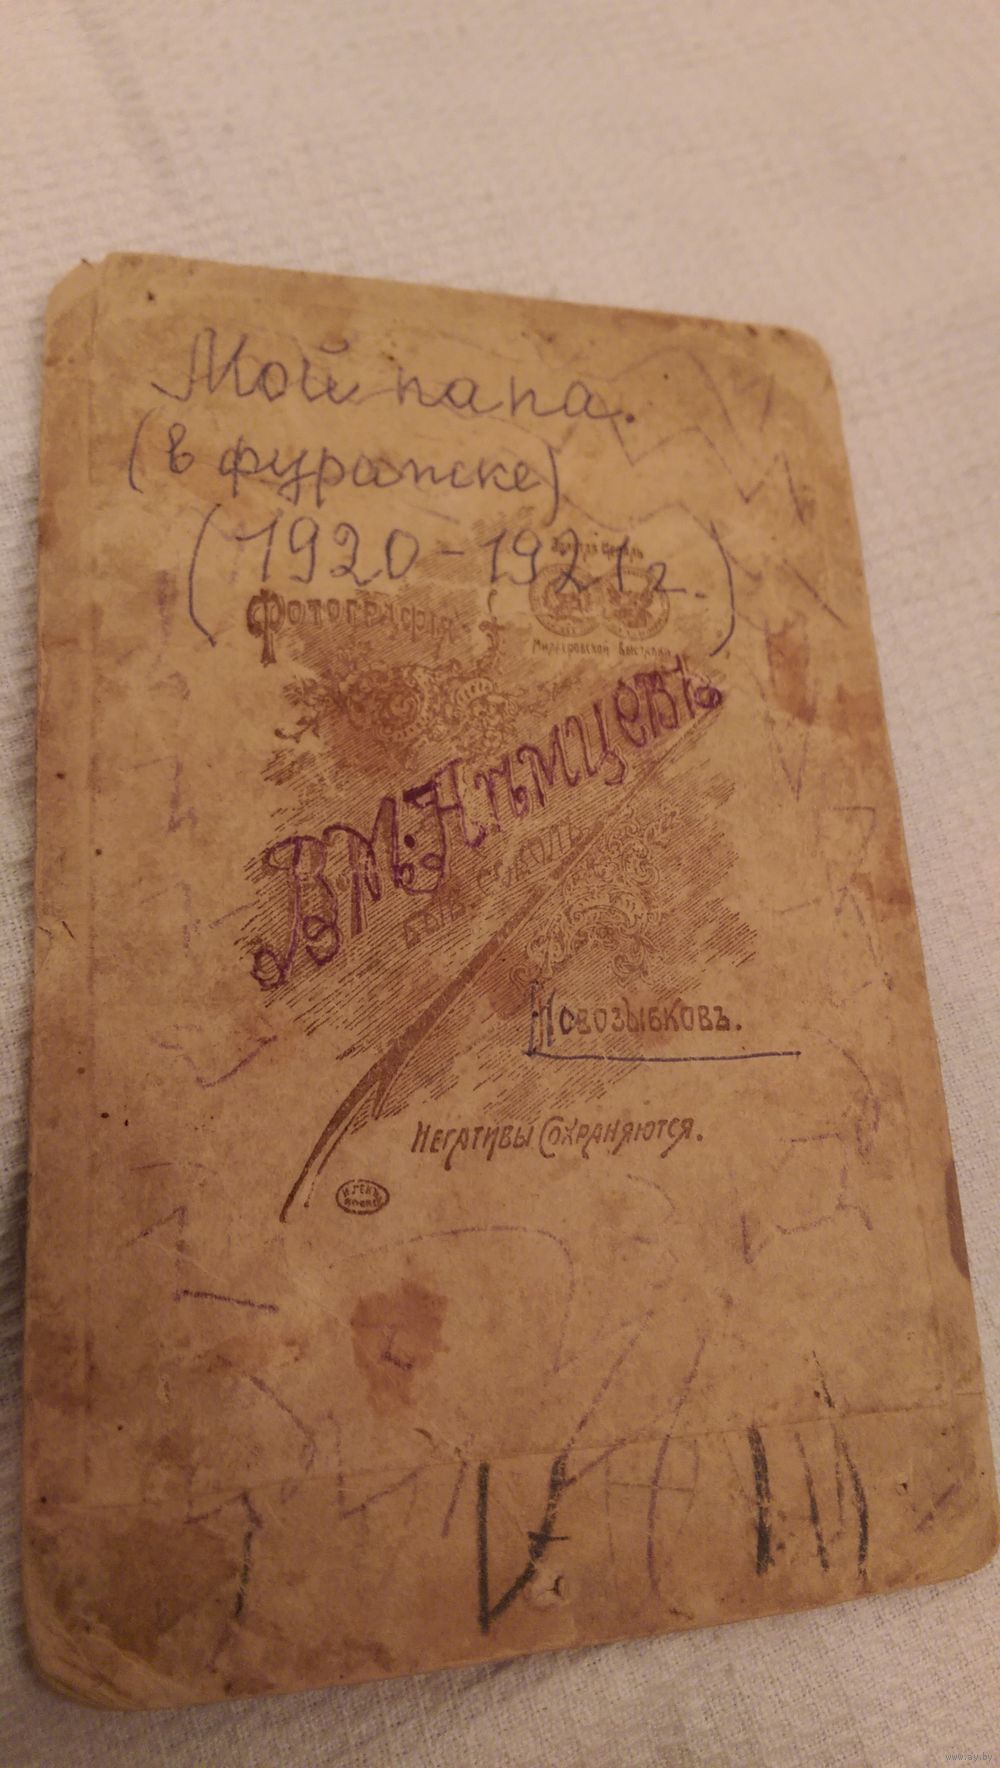 Мой папа.
(в фуражке)
(1920-1921г.)
Фотографія
Золотая Медаль
Выставки
В.М.Нѣмцевъ
Новозыбковъ.
Негативы Сохраняются.
www.ay.by